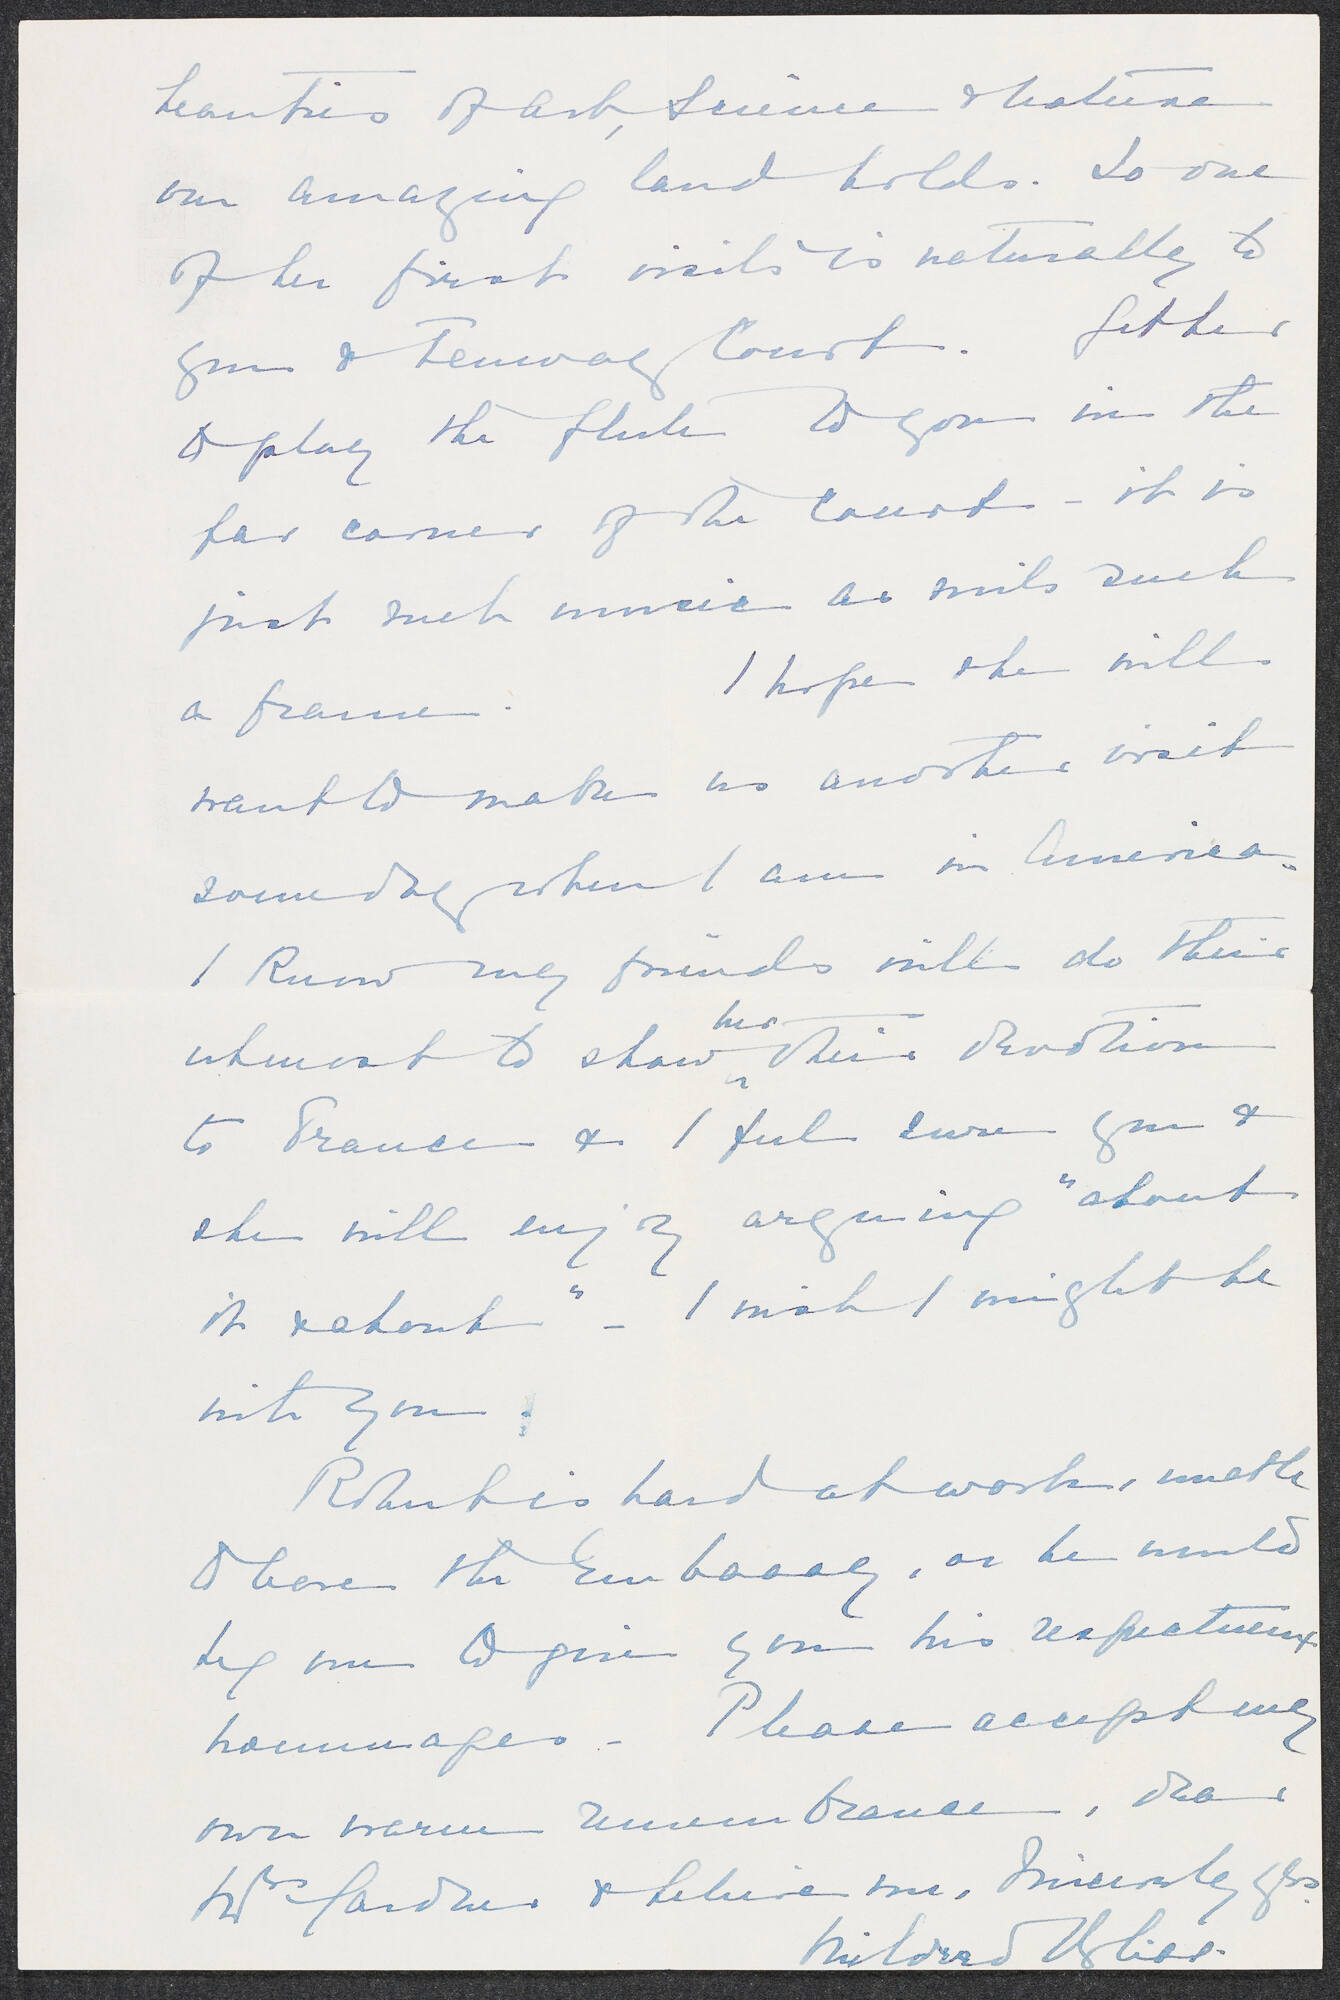 beauties of Art, Science & Nature
our amazing land holds. So one
of her first visits is naturally to
you & Fenway Court. Get her
to play the flute to you in the
far corner of the Court – it is
just such music as suits such
a frame. I hope she will
want to make us another visit
some day when I am in America.
I know my friends will do their
utmost to show her their devotion
to France & I feel sure you &
she will enjoy arguing "about
it & about" – I wish I might be
with you.
Robert is hard at work, unable
to leave the Embassy, or he would
beg me to give you his respectueux
hommages – Please accept my
own warm remembrance, dear
Mrs Gardner & believe me, Sincerely yrs.
Mildred Bliss.